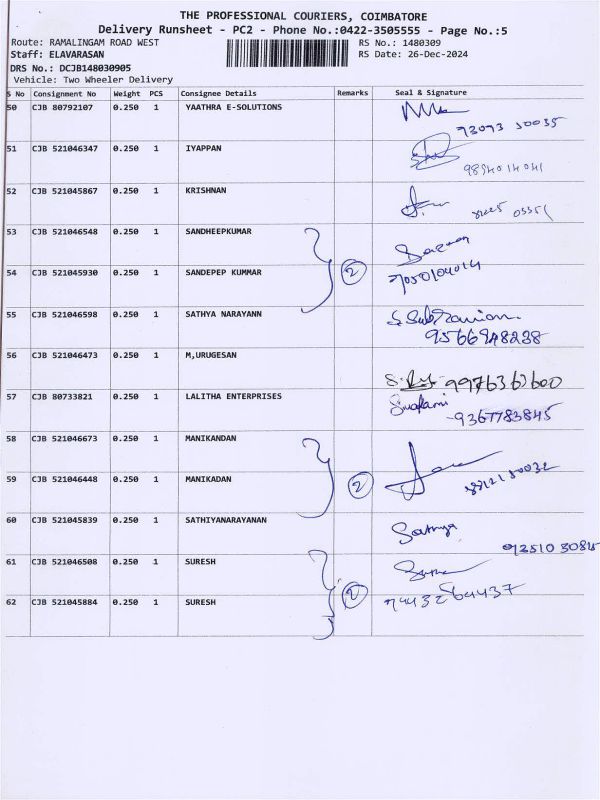 THE PROFESSIONAL COURIERS, COIMBATORE
Delivery Runsheet - PC2 - Phone No.:0422-3505555 - Page No.:5
Route: RAMALINGAM ROAD WEST RS No.: 1480309
Staff: ELAVARASAN RS Date: 26-Dec-2024
DRS No.: DCJB148030905
Vehicle: Two Wheeler Delivery
S No Consignment No Weight PCS Consignee Details Remarks Seal & Signature
50 CJB 80792107 0.250 1 YAATHRA E-SOLUTIONS
51 CJB 521046347 0.250 1 IYAPPAN
52 CJB 521045867 0.250 1 KRISHNAN
53 CJB 521046548 0.250 1 SANDHEEPKUMAR
2
54 CJB 521045930 0.250 1 SANDEPEP KUMMAR
55 CJB 521046598 0.250 1 SATHYA NARAYANN
9566948238
56 CJB 521046473 0.250 1 M,URUGESAN
9976363600
57 CJB 80733821 0.250 1 LALITHA ENTERPRISES
9367783845
58 CJB 521046673 0.250 1 MANIKANDAN
59 CJB 521046448 0.250 1 MANIKADAN 2
60 CJB 521045839 0.250 1 SATHIYANARAYANAN Sathya
61 CJB 521046508 0.250 1 SURESH
62 CJB 521045884 0.250 1 SURESH 2